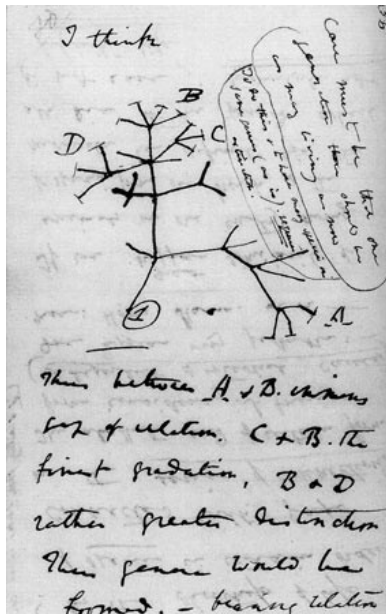 I think
Case must be that one
generation then should be
as many living as now
To do this & to have many species in
same genus (as is). requires
extinction.
B
C
D
1
A
Thus between A & B. immense
gap of relation. C & B. the
finest gradation, B & D
rather greater distinction
Thus genera would be
formed. — bearing relation